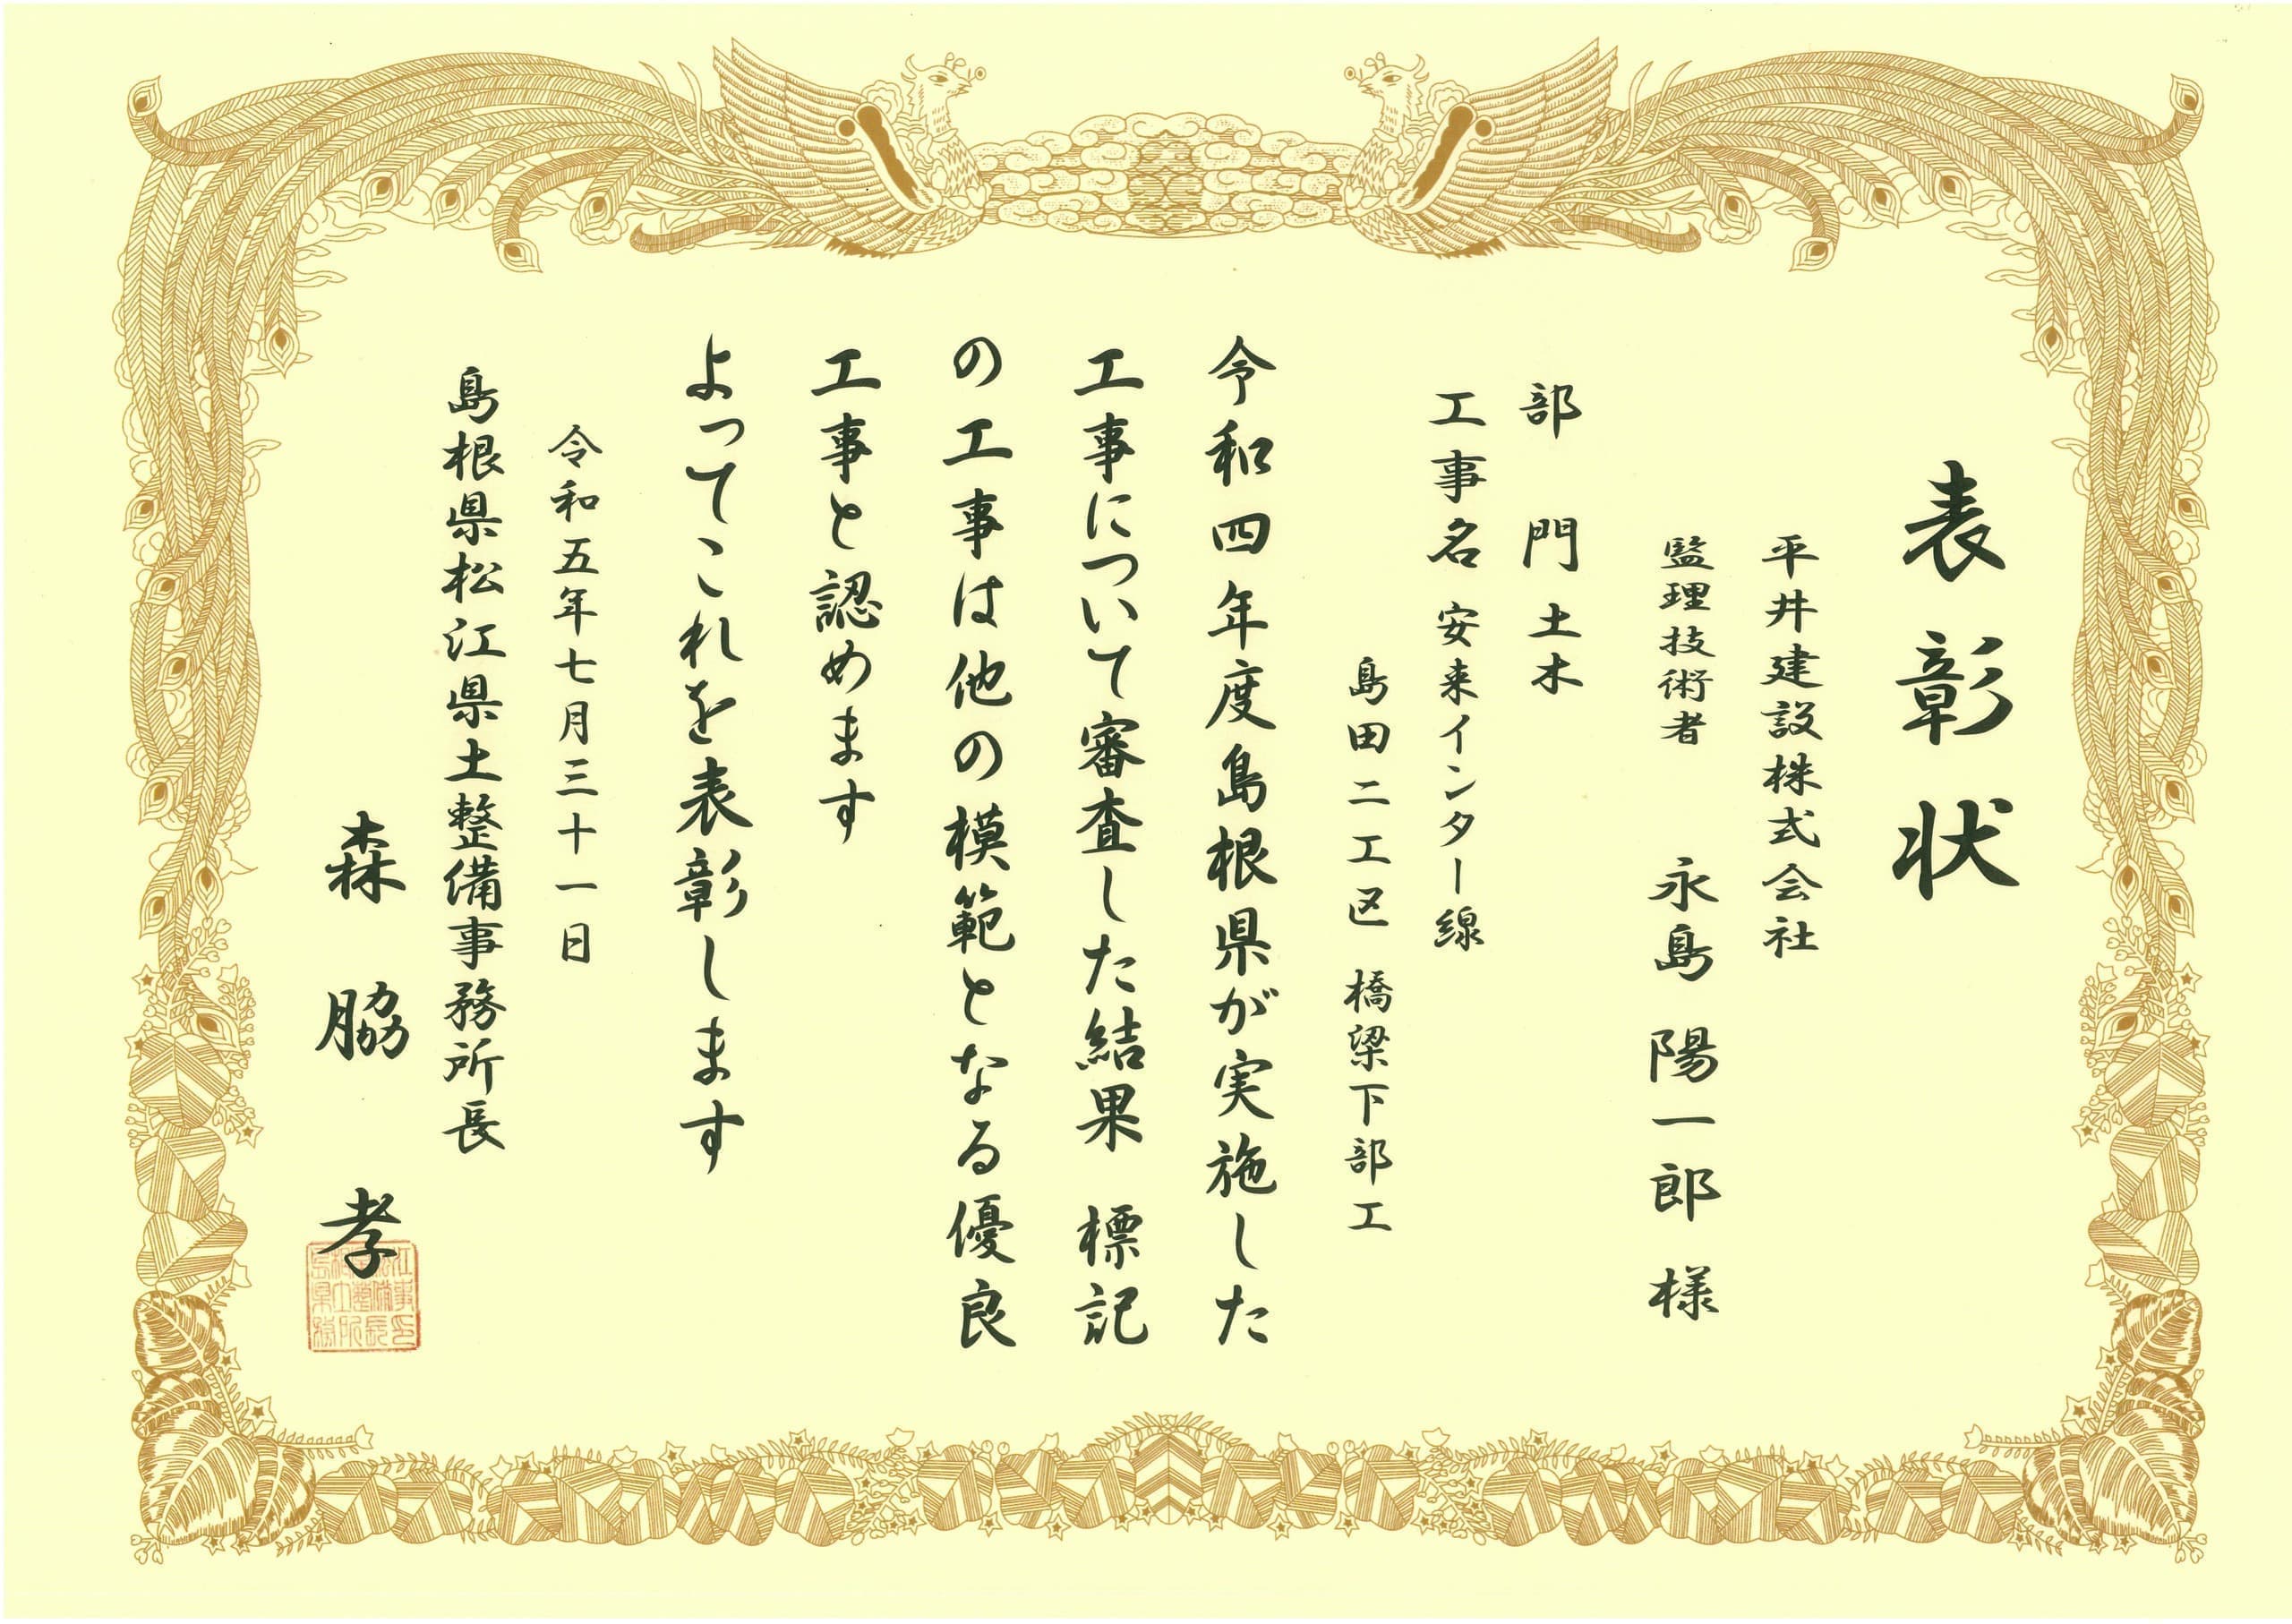 表彰状
平井建設株式会社
監理技術者 永島陽一郎 様
部門 土木
工事名 安来インター線
島田二工区 橋梁下部工
令和四年度島根県が実施した
工事について審査した結果 標記
の工事は他の模範となる優良
工事と認めます
よってこれを表彰します
令和五年七月三十一日
島根県松江県土整備事務所長
森脇孝